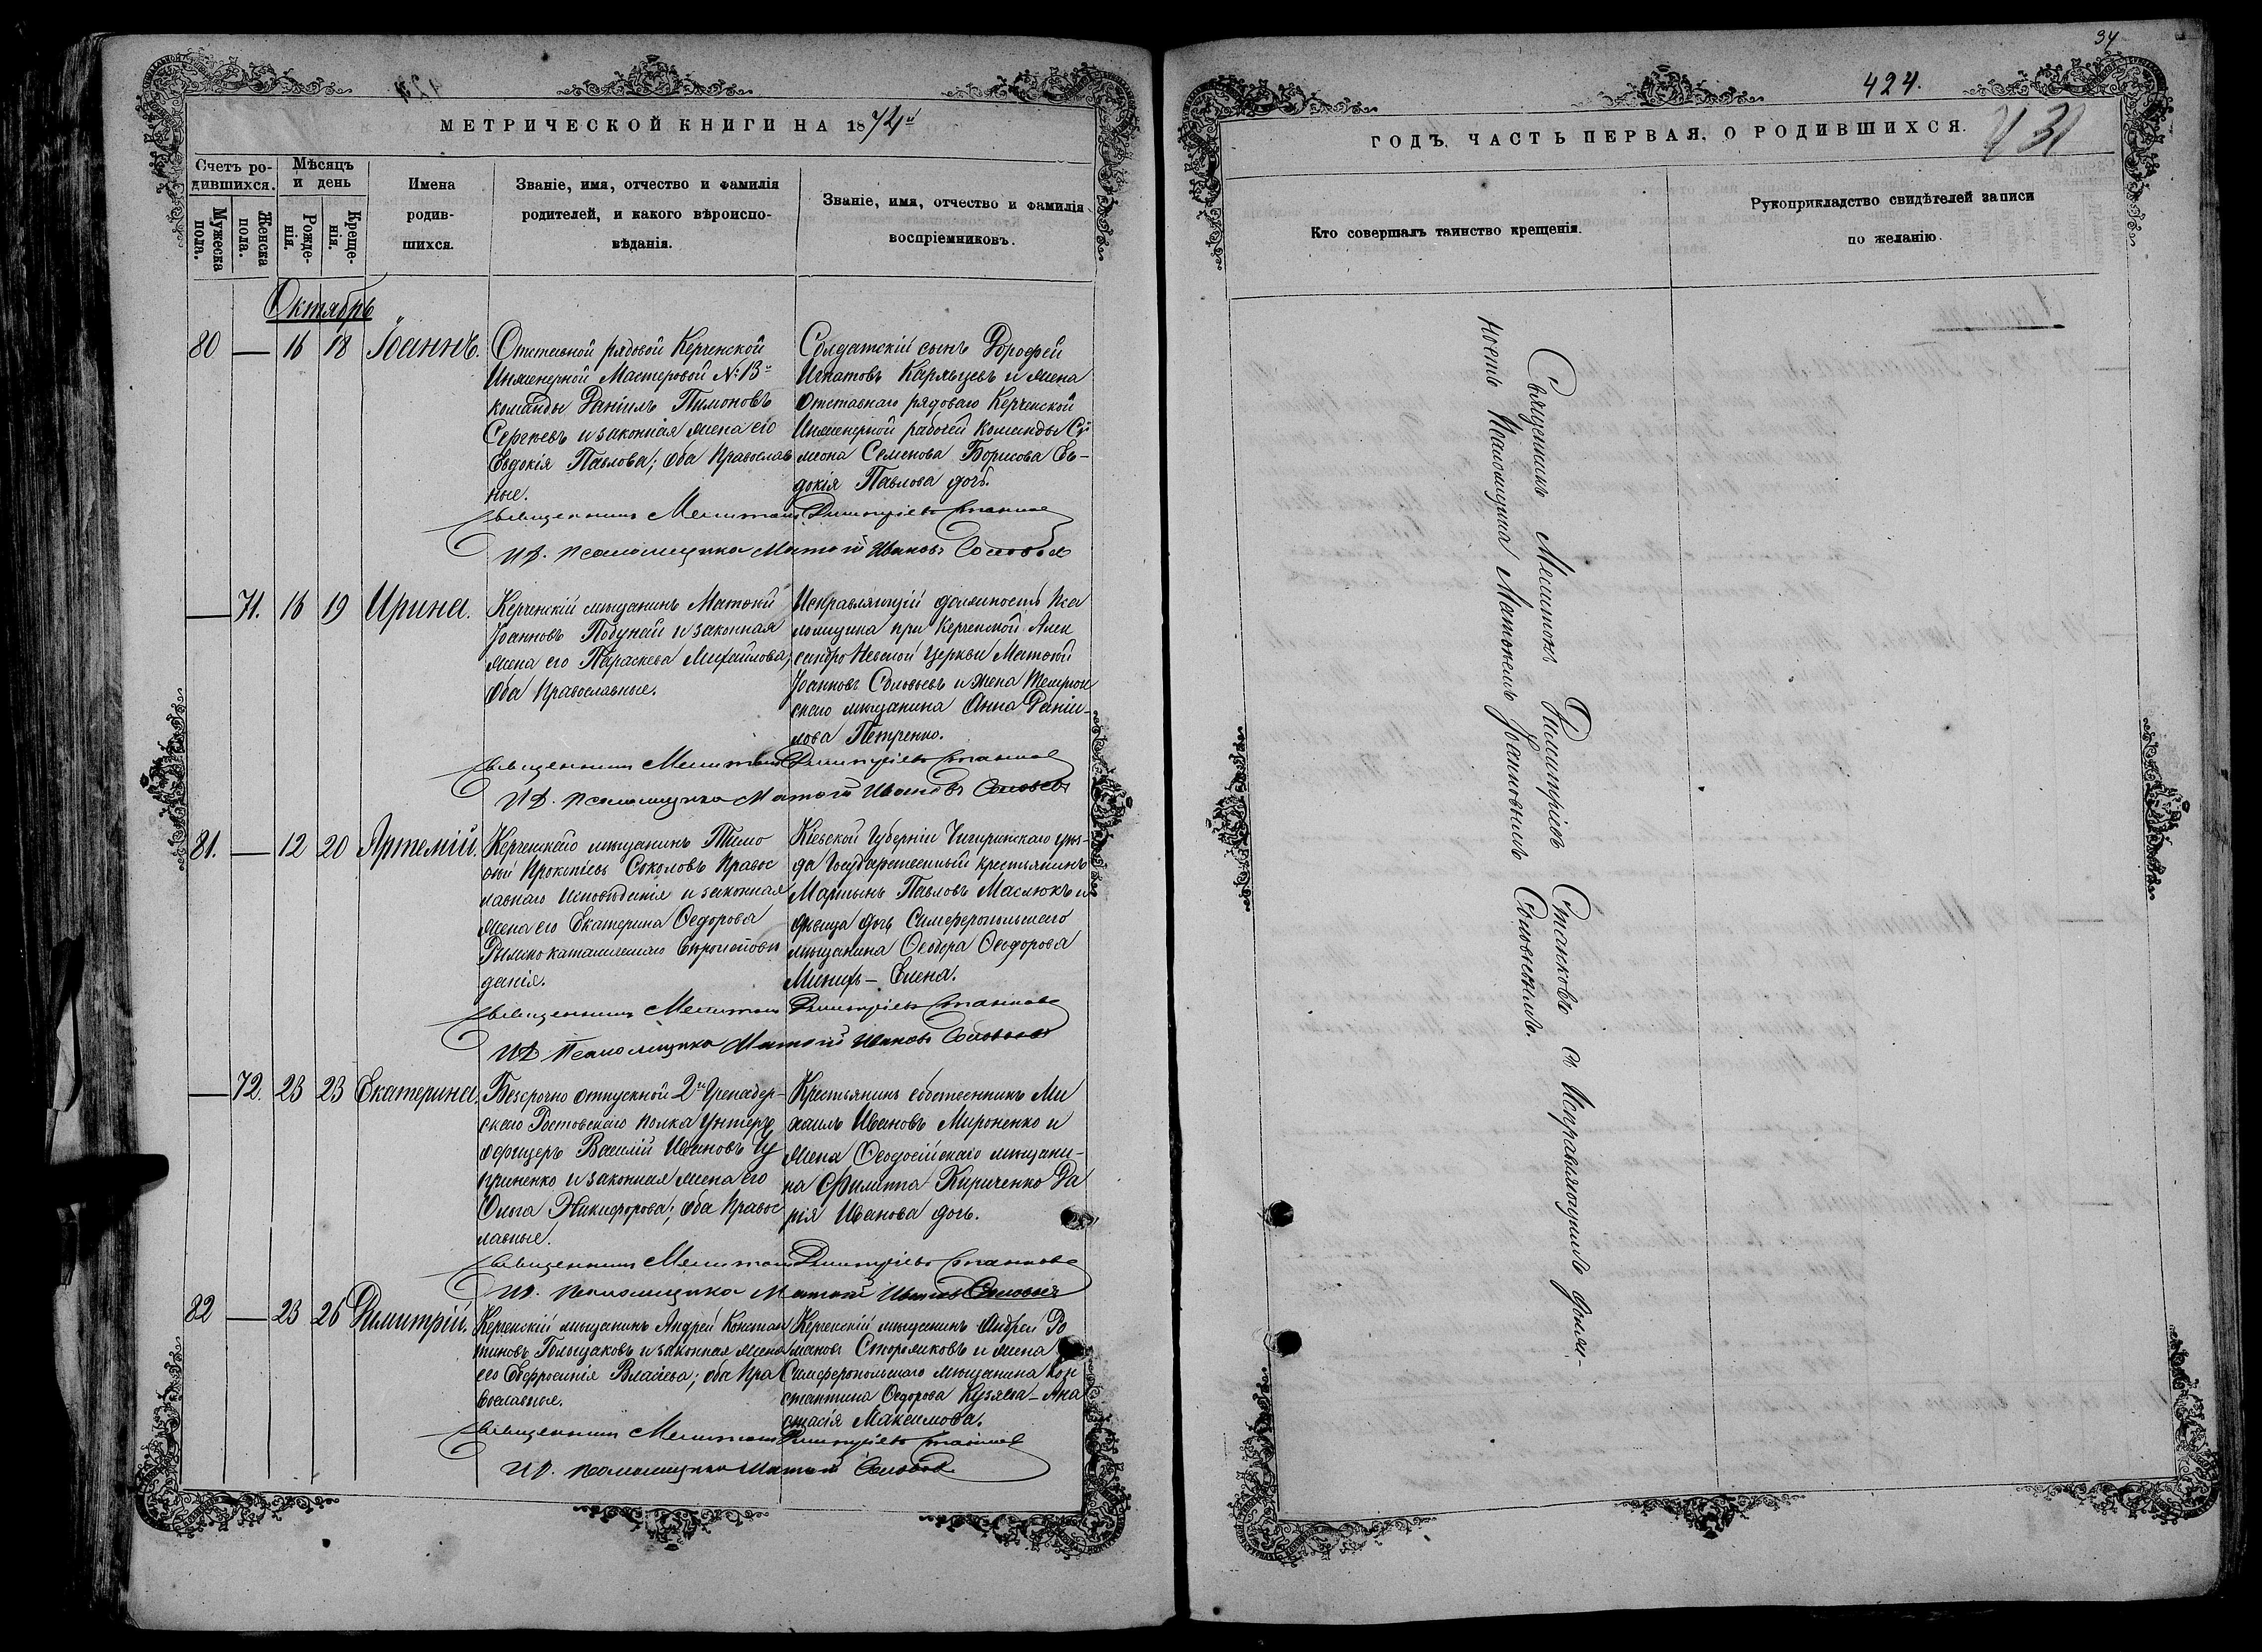 МЕТРИЧЕСКОЙ КНИГИ НА 1874й
Счетъ ро-
дившихся.
Мѣсяцъ
и день
Мужеска
пола.
Женска
пола.
Рожде-
нія.
Креще-
нія.
Имена
родив-
шихся.
Званіе, имя, отчество и фамилія
родителей, и какого вѣроиспо-
вѣданія.
Званіе, имя, отчество и фамилія
воспріемниковъ.
Октябрь
80 — 16 18 Іоаннъ.
Отставной рядовой Керченской
Инженерной Мастеровой №13й
команды Даніилъ Пимоновъ
Сергѣевъ и законная жена его
Евдокія Павлова; оба Православ
ные.
Солдатскій сынъ Дорофей
Игнатовъ и жена
отставнаго рядоваго Керченской
Инженерной рабочей команды Си
меона Семенова Борисова Ев-
докія Павлова дочь.
Священникъ Мелитонъ Димитріевъ Станковъ
И.Д. псаломщика Матѳій Ивановъ Соловьевъ
— 71. 16 19 Ирина.
Керченскій мѣщанинъ Матѳій
Іоанновъ Подунай и законная
жена его Параскева Михайлова;
оба Православные.
Исправляющій должность Пса
ломщика при Керченской Алек
сандро Невской церкви Матѳій
Іоанновъ Соловьевъ и жена Темрюк
скаго мѣщанина Анна Даніи-
лова Петренко.
Священникъ Мелитонъ Димитріевъ Станковъ
И.Д. псаломщика Матѳій Ивановъ Соловьевъ
81. — 12 20 Артемій.
Керченскаго мѣщанинъ Тимо
ѳій Прокопіевъ Соколовъ Правос
лавнаго Исповѣданія и законная
жена его Екатерина Ѳедорова
Римнокатолическаго Вѣроисповѣ
данія.
Кіевской Губерніи Чигиринскаго уѣз-
да Государственный крестьянинъ
Мартынъ Павловъ Маслюкъ и
дѣвица дочь Симферопольскаго
мѣщанина Ѳеодора Ѳеодорова
— Елена.
Священникъ Мелитонъ Димитріевъ Станковъ
И.Д. Псаломщика Матѳій Ивановъ Соловьевъ
— 72. 23 23 Екатерина.
Безсрочно отпускной 2го Гренадер-
скаго Ростовскаго полка Унтеръ
офицеръ Василій Ивановъ Чу
приненко и законная жена его
Ольга Никифорова; оба Правос
лавные.
Крестьянинъ собственникъ Ми
хаилъ Ивановъ Мироненко и
жена Ѳеодосійскаго мѣщани-
на Филиппа Кириченко Да
рія Иванова дочь.
Священникъ Мелитонъ Димитріевъ Станковъ
И.Д. Псаломщика Матѳій Ивановъ Соловьевъ
82 — 23 26 Димитрій.
Керченскій мѣщанинъ Андрей Констан
тиновъ Голыдаковъ и законная жена
его Евфросинія Власіева; оба Пра
вославные.
Керченскій мѣщанинъ Андрей Ро
мановъ Сторожиковъ и жена
Симферопольскаго мѣщанина Кон
стантина Ѳедорова Кузяева — Ана
стасія Максимова.
Священникъ Мелитонъ Димитріевъ Станковъ
И.Д. псаломщика Матѳій Соловьевъ
34
424.
431
ГОДЪ. ЧАСТЬ ПЕРВАЯ. О РОДИВШИХСЯ.
Кто совершалъ таинство крещенія.
Рукоприкладство свидѣтелей записи
по желанію.
Священникъ Мелитонъ Димитріевъ Станковъ съ Исправляющимъ долж-
ность Псаломщика Матѳіемъ Іоанновымъ Соловьевымъ.